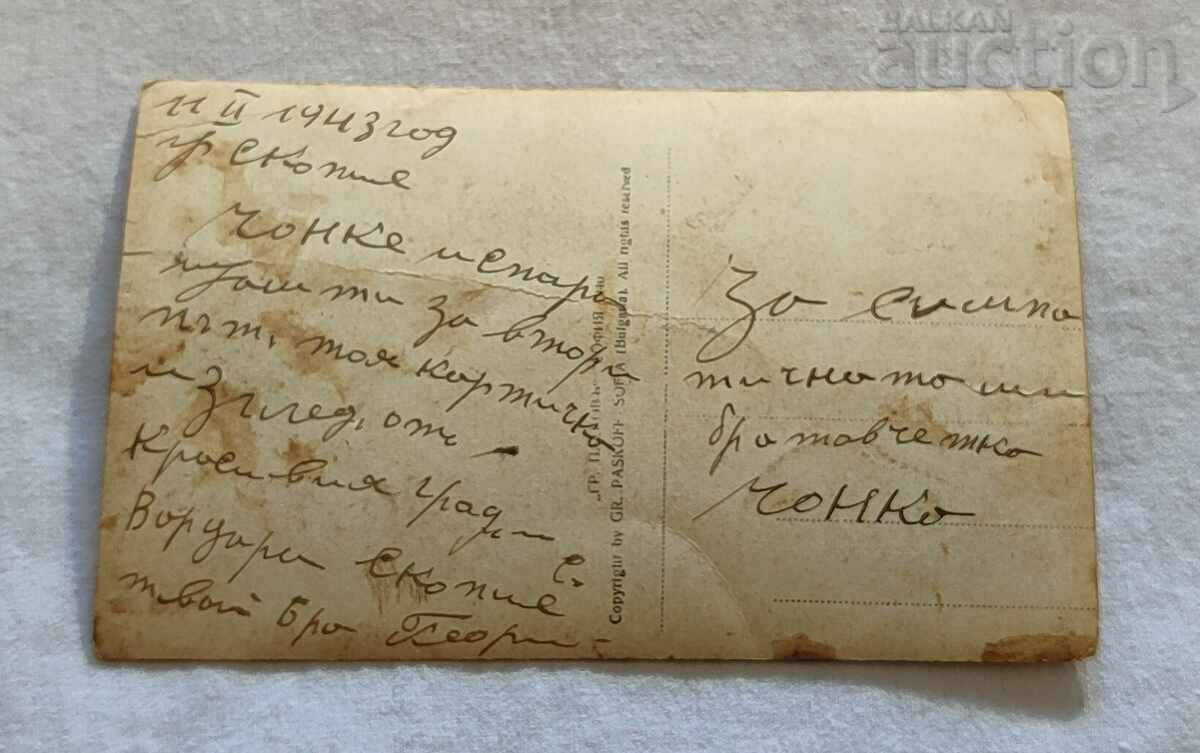 11 II 1943 год
гр Скопие
Чонке испра
щам ти за втори
път, тоя картичка
изглед, от
Красивия град
Вардара Скопие
твой Бра Георги
За симпа
тичното ми
братовчетко
Чонко
Copyright by GR. PASKOFF SOFIA (Bulgaria). All rights reserved
BALKAN
auction